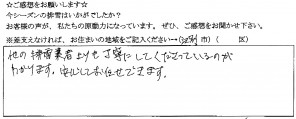 ☆ご感想をお願いします☆
今シーズンの排雪はいかがでしたか?
お客様の声が、私たちの原動力になっています。ぜひ、ご感想をお聞かせ下さい。
※差支えなければ、お住まいの地域をご記入ください→(江別 市)( 区)
他の排雪業者よりも丁寧にしてくださっているのが
わかります。安心しておまかせできます。